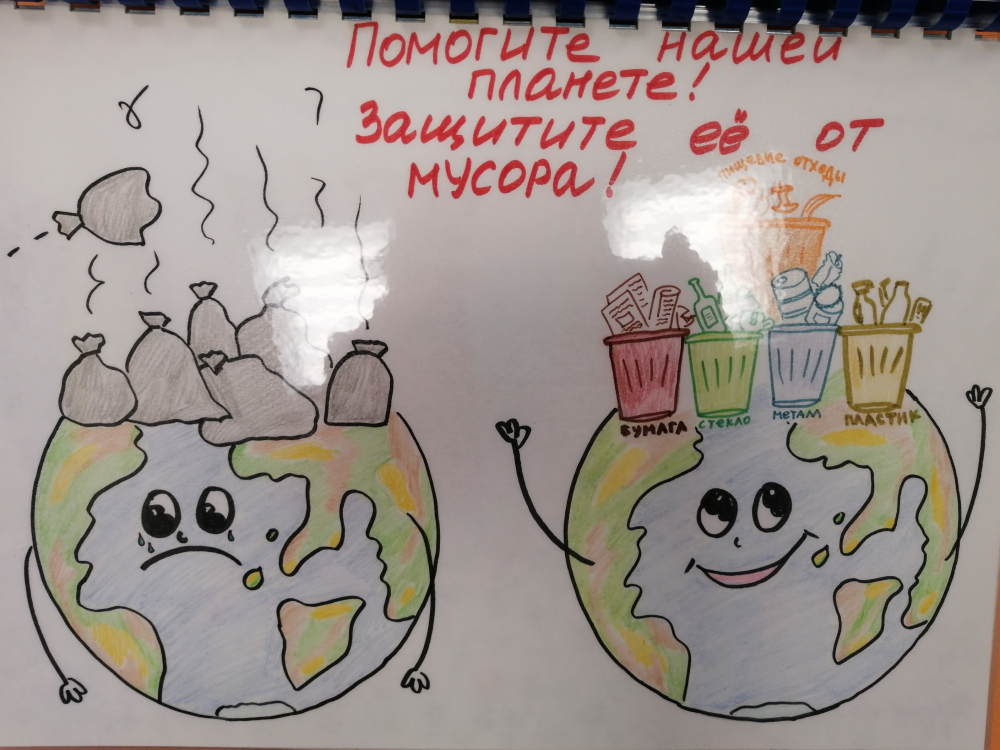 Помогите нашей
планете!
Защитите её от
мусора!
пищевые отходы
БУМАГА
СТЕКЛО
МЕТАМ
ПЛАСТИК